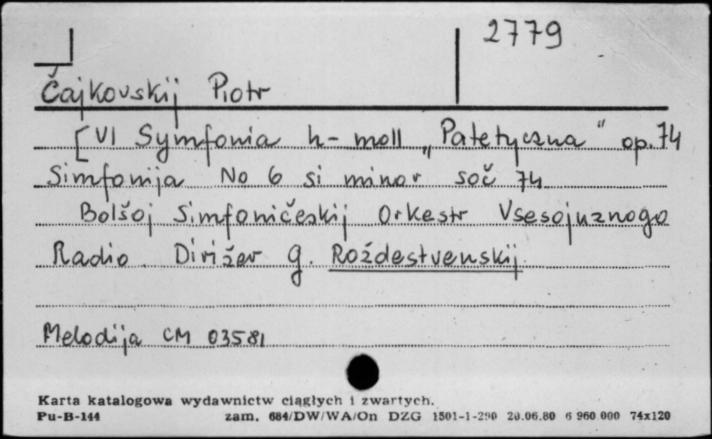 2779
Čajkovskij Piotr
[VI Symfonia h-moll „Patetyczna" op. 74
Simfonija No 6 si minor soč 74
Bolšoj Simfoničeskij Orkestr Vsesojuznogo
Radio. Dirižer G. Roždestvenskij.
Melodija CM 03581
Karta katalogowa wydawnictw ciągłych i zwartych.
Pu-B-144 zam. 684/DW/WA/On DZG 1501-1-290 20.06.80 6 960 000 74x120